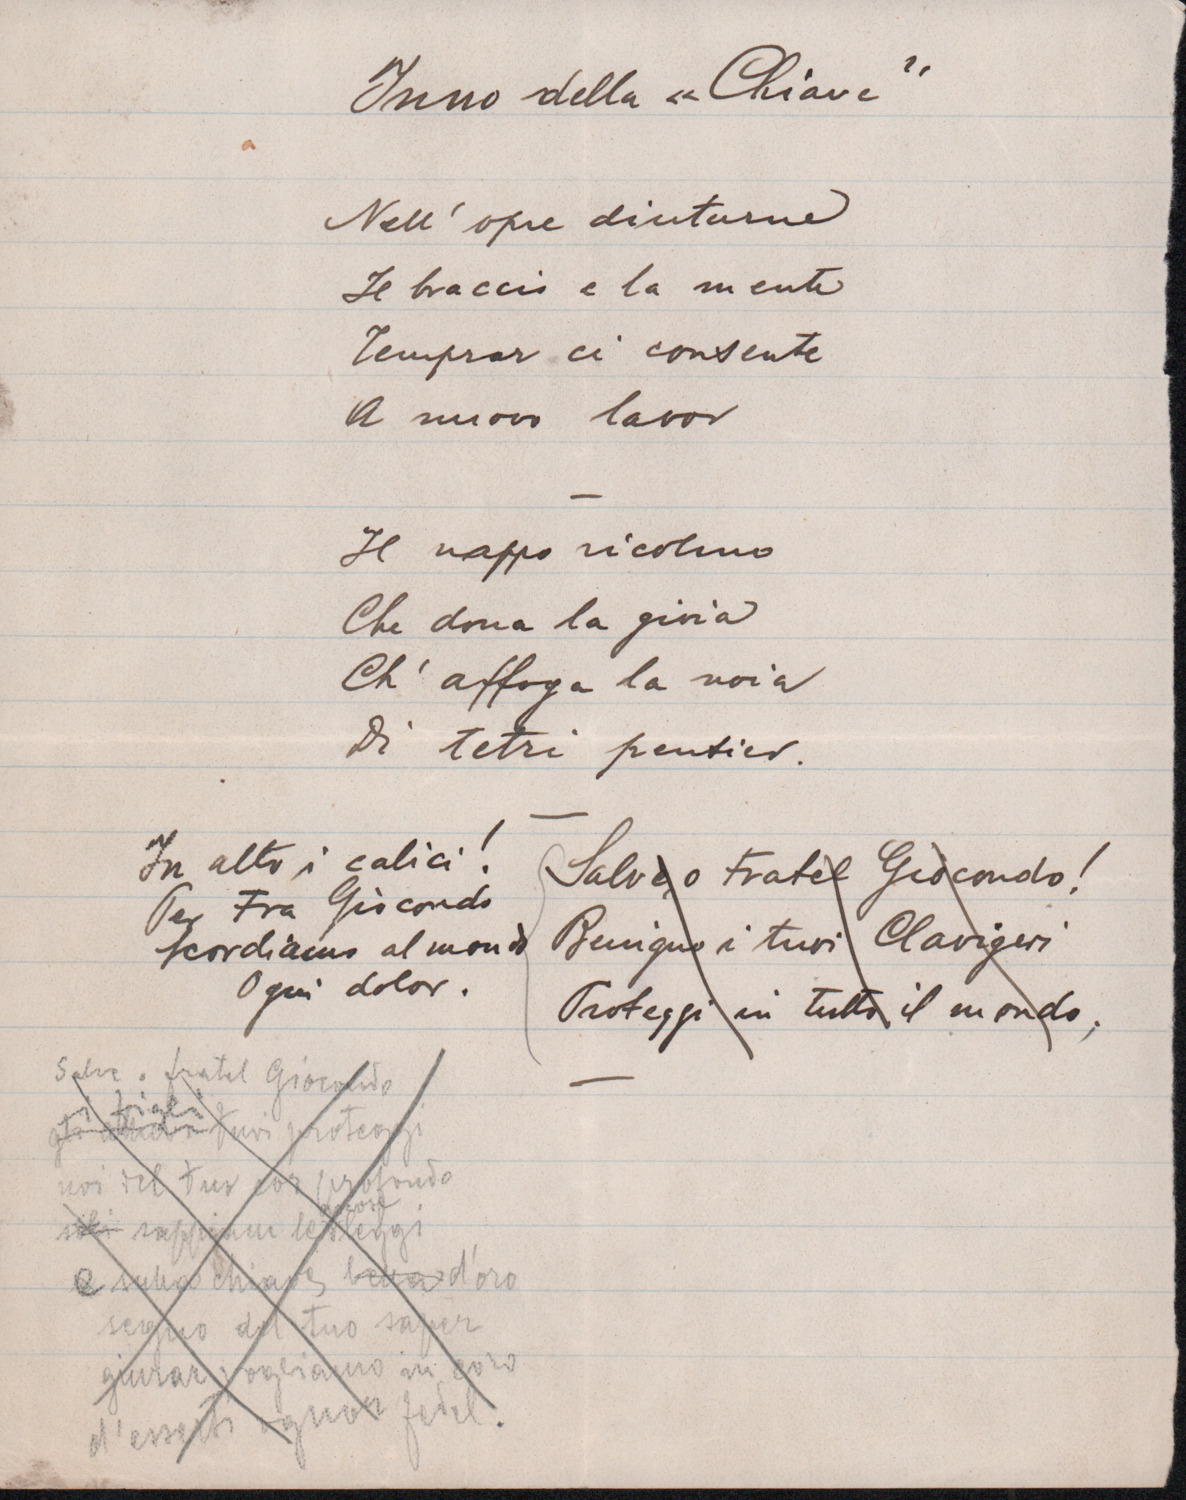 Inno della « Chiave "
Nell' opre diuturne
Il braccio e la mente
Temprar ci consente
A nuovo lavor
—
Il nappo ricolmo
Che dona la gioia
Ch' affoga la noia
Di tetri pensier.
—
In alto i calici!
Per Fra Giocondo
scordiamo al mondo
Ogni dolor.
Salve, o Fratel Giocondo!
Benigno i tuoi Clavigeri
Proteggi in tutto il mondo,
—
Salve o fratel Giocondo
i figli
tuoi proteggi
noi del tuo cor profondo
sappiam le leggi
E sulla chiave d'oro
segno del tuo saper
giurar vogliamo in coro
d'esserti ognor fedel.